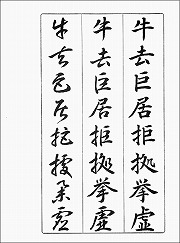 牛去巨居拒拠挙虚
牛去巨居拒拠挙虚
牛去巨居拒拠挙虚